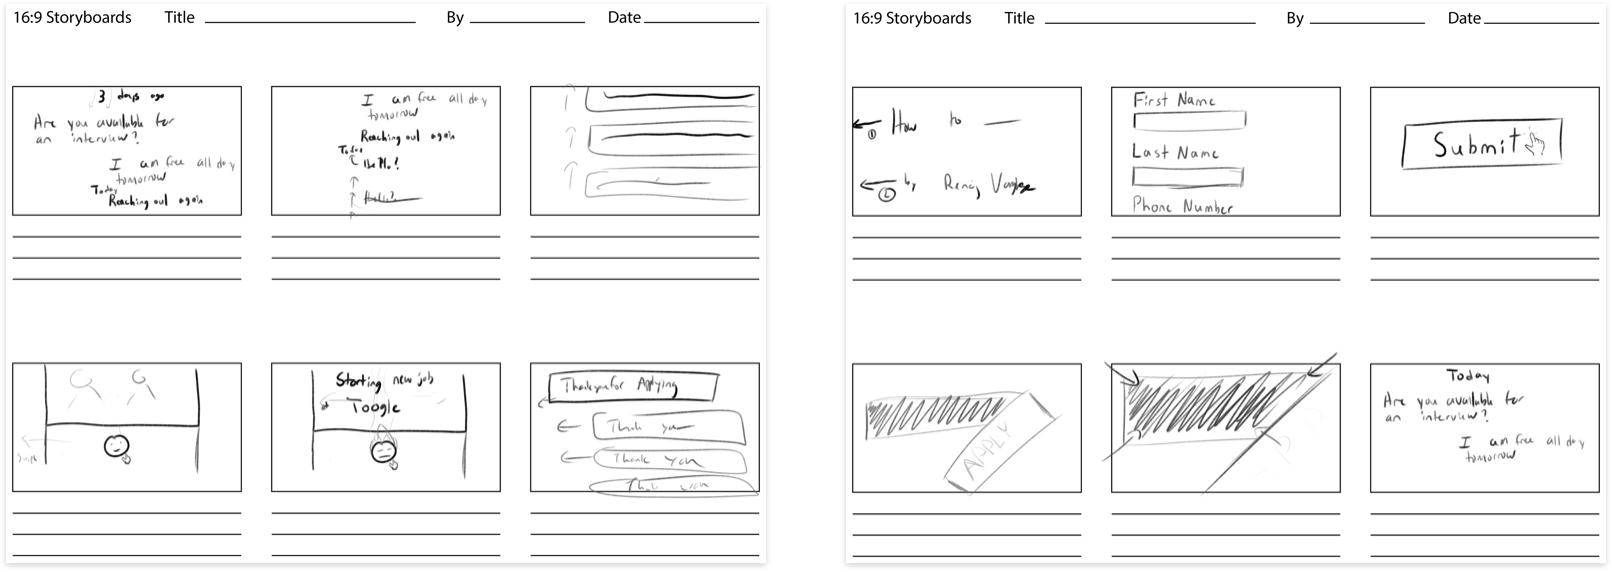 16:9 Storyboards Title By Date
3 days ago
Are you available for
an interview?
I am free all day
tomorrow
Today
Reaching out again
I am free all day
tomorrow
Reaching out again
Today
Hello?
Starting new job
Toogle
Thank you for Applying
Thank you
Thank you
16:9 Storyboards Title By Date
① How to
② by
First Name
Last Name
Phone Number
Submit
APPLY
Today
Are you available for
an interview?
I am free all day
tomorrow